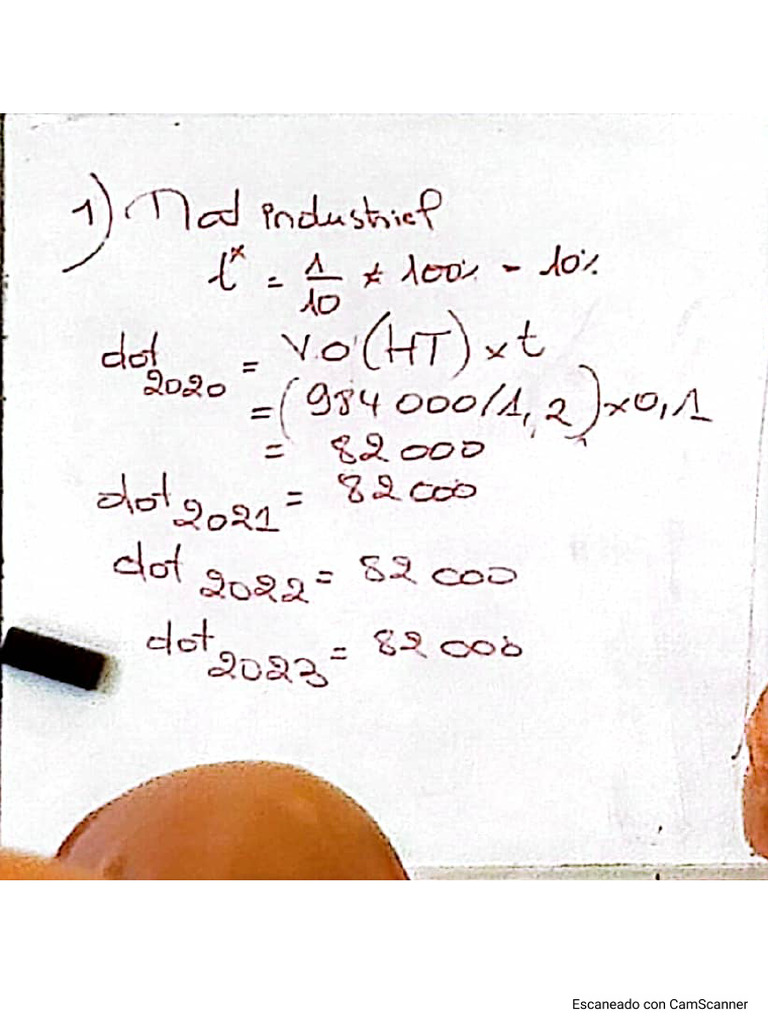 1) Mat industriel
t* = 1/10 * 100% = 10%
dot 2020 = VO (HT) x t
= (984 000/1,2) x 0,1
= 82 000
dot 2021 = 82 000
dot 2022 = 82 000
dot 2023 = 82 000
Escaneado con CamScanner